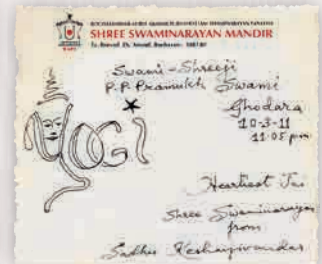 SHREE SWAMINARAYAN MANDIR
Swami-Shreeji
P.P. Pramukh Swami
Ghodara
10-3-11
11:05 pm
YOGI
Heartiest Jai
Shree Swaminarayan
from
Sadhu